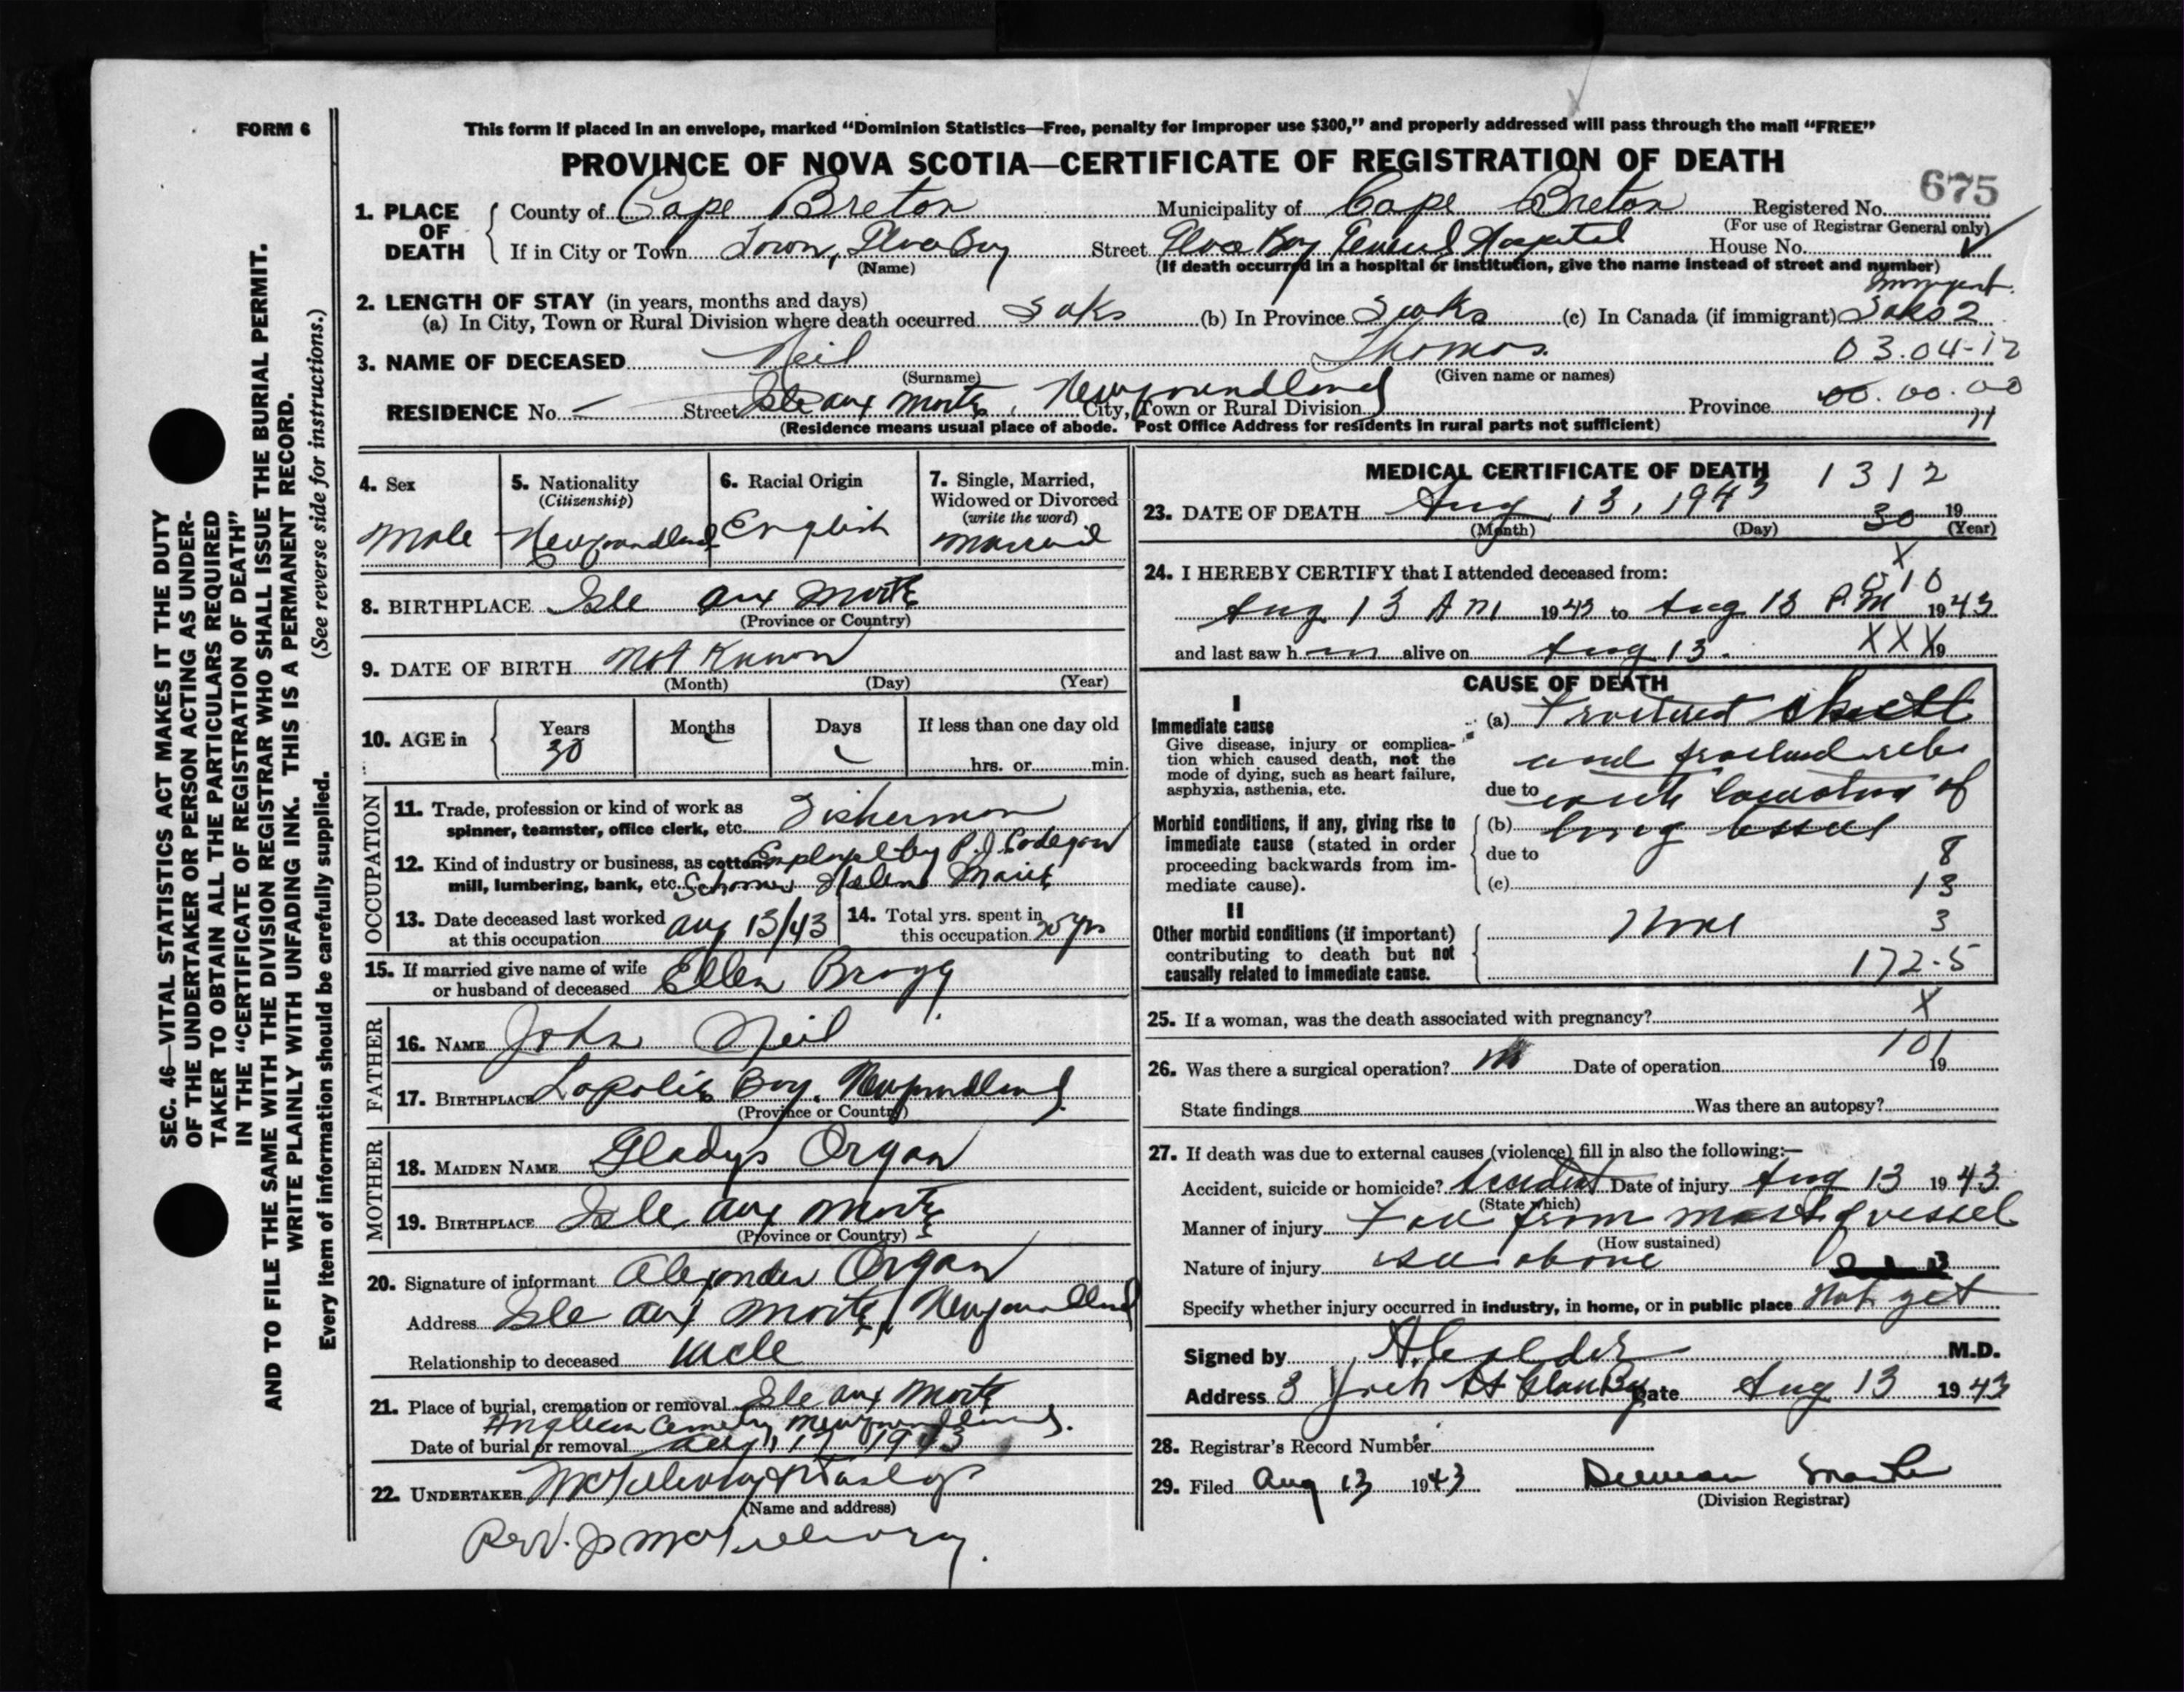 FORM 6
This form if placed in an envelope, marked “Dominion Statistics—Free, penalty for improper use $300,” and properly addressed will pass through the mail “FREE”
PROVINCE OF NOVA SCOTIA—CERTIFICATE OF REGISTRATION OF DEATH
675
1. PLACE OF DEATH County of Cape Breton Municipality of Cape Breton Registered No.
(For use of Registrar General only)
If in City or Town Town, Glace Bay Street Glace Bay General Hospital House No.
(Name) (If death occurred in a hospital or institution, give the name instead of street and number)
2. LENGTH OF STAY (in years, months and days)
(a) In City, Town or Rural Division where death occurred (b) In Province (c) In Canada (if immigrant)
3. NAME OF DECEASED Neil Thomas 03.04-12
(Surname) (Given name or names)
RESIDENCE No. — Street Isle aux Morts, Newfoundland City, Town or Rural Division Province 00.00.00
(Residence means usual place of abode. Post Office Address for residents in rural parts not sufficient) 11
4. Sex Male
5. Nationality (Citizenship) Newfoundland
6. Racial Origin English
7. Single, Married, Widowed or Divorced (write the word) Married
8. BIRTHPLACE Isle aux Morts
(Province or Country)
9. DATE OF BIRTH Not Known
(Month) (Day) (Year)
10. AGE in Years 30 Months Days If less than one day old
hrs. or min.
OCCUPATION
11. Trade, profession or kind of work as spinner, teamster, office clerk, etc. Fisherman
12. Kind of industry or business, as cotton mill, lumbering, bank, etc. Employed by P. J. Schooner Helen Marie
13. Date deceased last worked at this occupation Aug 13/43
14. Total yrs. spent in this occupation yrs
15. If married give name of wife or husband of deceased Ellen Bragg
FATHER
16. NAME John Neil
17. BIRTHPLACE Bay, Newfoundland
(Province or Country)
MOTHER
18. MAIDEN NAME Gladys Organ
19. BIRTHPLACE Isle aux Morts
(Province or Country)
20. Signature of informant Alexander Organ
Address Isle aux Morts, Newfoundland
Relationship to deceased Uncle
21. Place of burial, cremation or removal Isle aux Morts
Anglican Cemetery Newfoundland.
Date of burial or removal Aug, 17 1943
22. UNDERTAKER
(Name and address)
MEDICAL CERTIFICATE OF DEATH 1312
23. DATE OF DEATH Aug 13, 1943 30 19
(Month) (Day) (Year)
X
24. I HEREBY CERTIFY that I attended deceased from:
Aug 13 AM 1943 to Aug 13 P.M 1943
and last saw h alive on Aug 13. XXX 19
CAUSE OF DEATH
I
Immediate cause (a) Fractured skull
Give disease, injury or complication which caused death, not the mode of dying, such as heart failure, asphyxia, asthenia, etc.
and fractured ribs
due to with laceration of
Morbid conditions, if any, giving rise to immediate cause (stated in order proceeding backwards from immediate cause).
(b) lung tissue
due to 8
(c) 13
II
Other morbid conditions (if important) contributing to death but not causally related to immediate cause.
None 3
172-5
X
25. If a woman, was the death associated with pregnancy?
101
26. Was there a surgical operation? no Date of operation 19
State findings Was there an autopsy?
27. If death was due to external causes (violence) fill in also the following:—
Accident, suicide or homicide? Accident Date of injury Aug 13 1943
(State which)
Manner of injury Fall from mast of vessel
(How sustained)
Nature of injury see above
Specify whether injury occurred in industry, in home, or in public place
Signed by M.D.
Address 3 York St Glace Bay Date Aug 13 1943
28. Registrar's Record Number
29. Filed Aug 13 1943
(Division Registrar)
SEC. 46—VITAL STATISTICS ACT MAKES IT THE DUTY
OF THE UNDERTAKER OR PERSON ACTING AS UNDER-
TAKER TO OBTAIN ALL THE PARTICULARS REQUIRED
IN THE “CERTIFICATE OF REGISTRATION OF DEATH”
AND TO FILE THE SAME WITH THE DIVISION REGISTRAR WHO SHALL ISSUE THE BURIAL PERMIT.
WRITE PLAINLY WITH UNFADING INK. THIS IS A PERMANENT RECORD.
Every item of information should be carefully supplied. (See reverse side for instructions.)